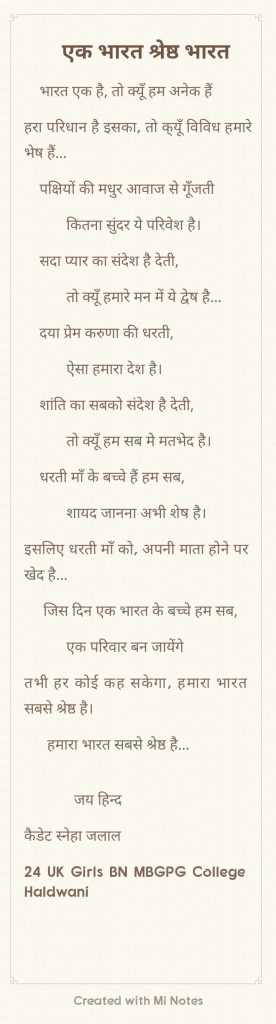 एक भारत श्रेष्ठ भारत
भारत एक है, तो क्यूँ हम अनेक हैं
हरा परिधान है इसका, तो क्यूँ विविध हमारे
भेष हैं...
पक्षियों की मधुर आवाज से गूँजती
कितना सुंदर ये परिवेश है।
सदा प्यार का संदेश है देती,
तो क्यूँ हमारे मन में ये द्वेष है...
दया प्रेम करुणा की धरती,
ऐसा हमारा देश है।
शांति का सबको संदेश है देती,
तो क्यूँ हम सब मे मतभेद है।
धरती माँ के बच्चे हैं हम सब,
शायद जानना अभी शेष है।
इसलिए धरती माँ को, अपनी माता होने पर
खेद है...
जिस दिन एक भारत के बच्चे हम सब,
एक परिवार बन जायेंगे
तभी हर कोई कह सकेगा, हमारा भारत
सबसे श्रेष्ठ है।
हमारा भारत सबसे श्रेष्ठ है...
जय हिन्द
कैडेट स्नेहा जलाल
24 UK Girls BN MBGPG College
Haldwani
Created with Mi Notes